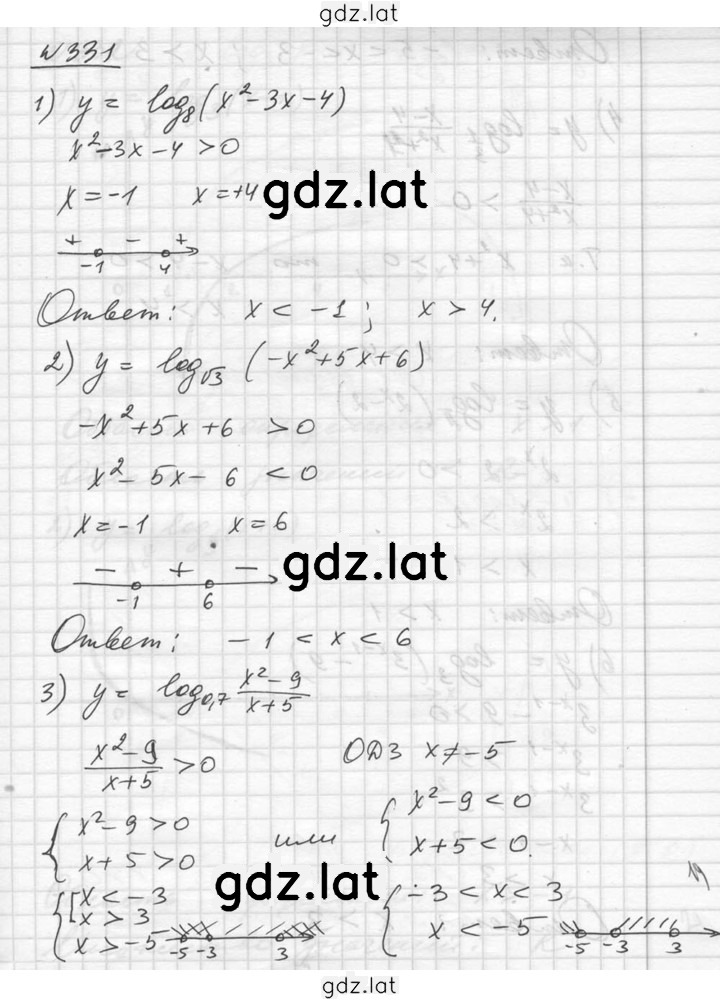 gdz.lat
№331
1) y = log₈(x²-3x-4)
x²-3x-4 >0
x=-1 x=+4
gdz.lat
+ - +
-1 4
Ответ: x < -1; x > 4.
2) y = log√3 (-x²+5x+6)
-x²+5x+6 >0
x²-5x-6 <0
x=-1 x=6
- + -
gdz.lat
-1 6
Ответ: -1 < x < 6
3) y = log₀,₇ (x²-9)/(x+5)
(x²-9)/(x+5) >0 ОДЗ x≠-5
{ x²-9 >0 или { x²-9 <0
x+5 >0 x+5 <0.
gdz.lat
{ [ x < -3 { -3 < x < 3
x > 3 x < -5
x > -5
-5 -3 3 -5 -3 3
gdz.lat